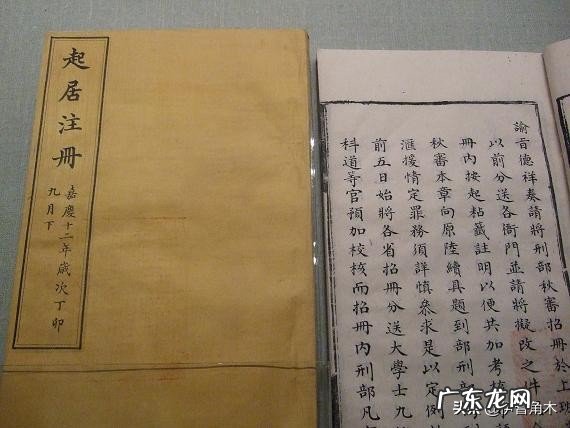 起居注冊
嘉慶十二年歲次丁卯
九月下
諭旨德祥奏請將刑部秋審招冊於上
以前分送各衙門並請將擬改之件
冊內按起粘籤註明以便共加考
秋審本章向原陸續具題到部刑部
滙援情定罪務須詳慎參求是以定例
前五日始將各省招冊分送大學士九
科道等官預加校核而招冊內刑部凡
广东龙网